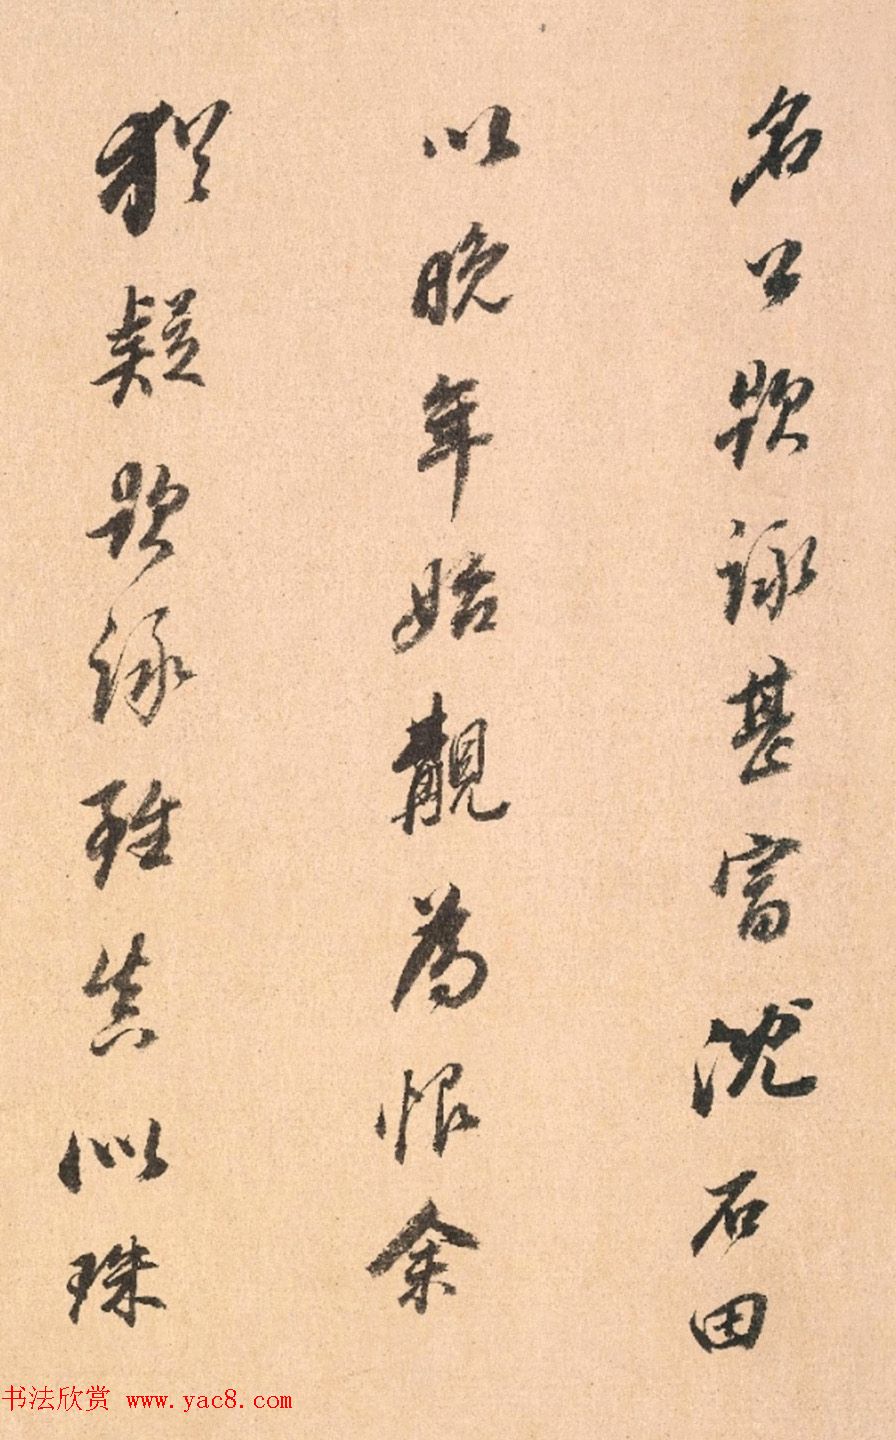 名公題詠甚富沈石田
以晚年始覯為恨余
猶疑題詠雖真似珠
书法欣赏 www.yac8.com